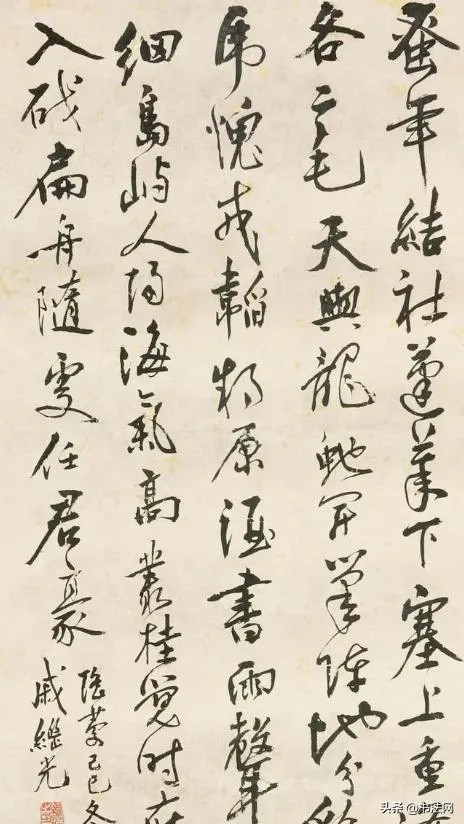 蚤年結社蓬萊下塞上重
各二毛天與龍蛇開筆陣地分
虎愧戎韜原書雨聲
細島嶼人歸海氣高叢桂時
入扁舟隨處任君豪
隆慶己巳冬
戚繼光
头条 @书法网